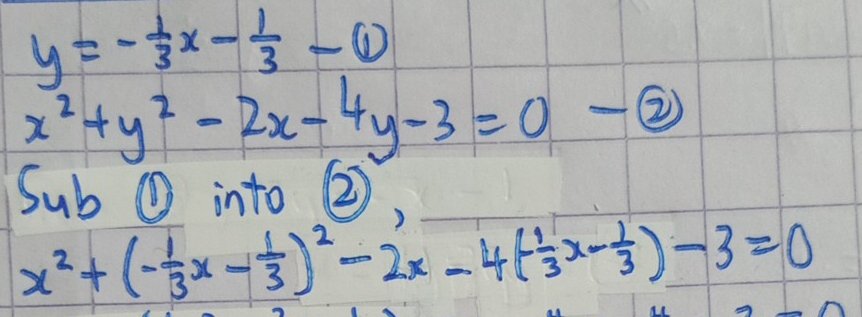 y = -1/3x - 1/3 - ①
x² + y² - 2x - 4y - 3 = 0 - ②
Sub ① into ②,
x² + (-1/3x - 1/3)² - 2x - 4(-1/3x - 1/3) - 3 = 0